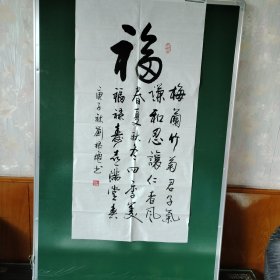 福
梅蘭竹菊君子氣
謙和忍讓仁者風
春夏秋冬四季美
福祿壽喜滿堂春
庚子秋劉
书